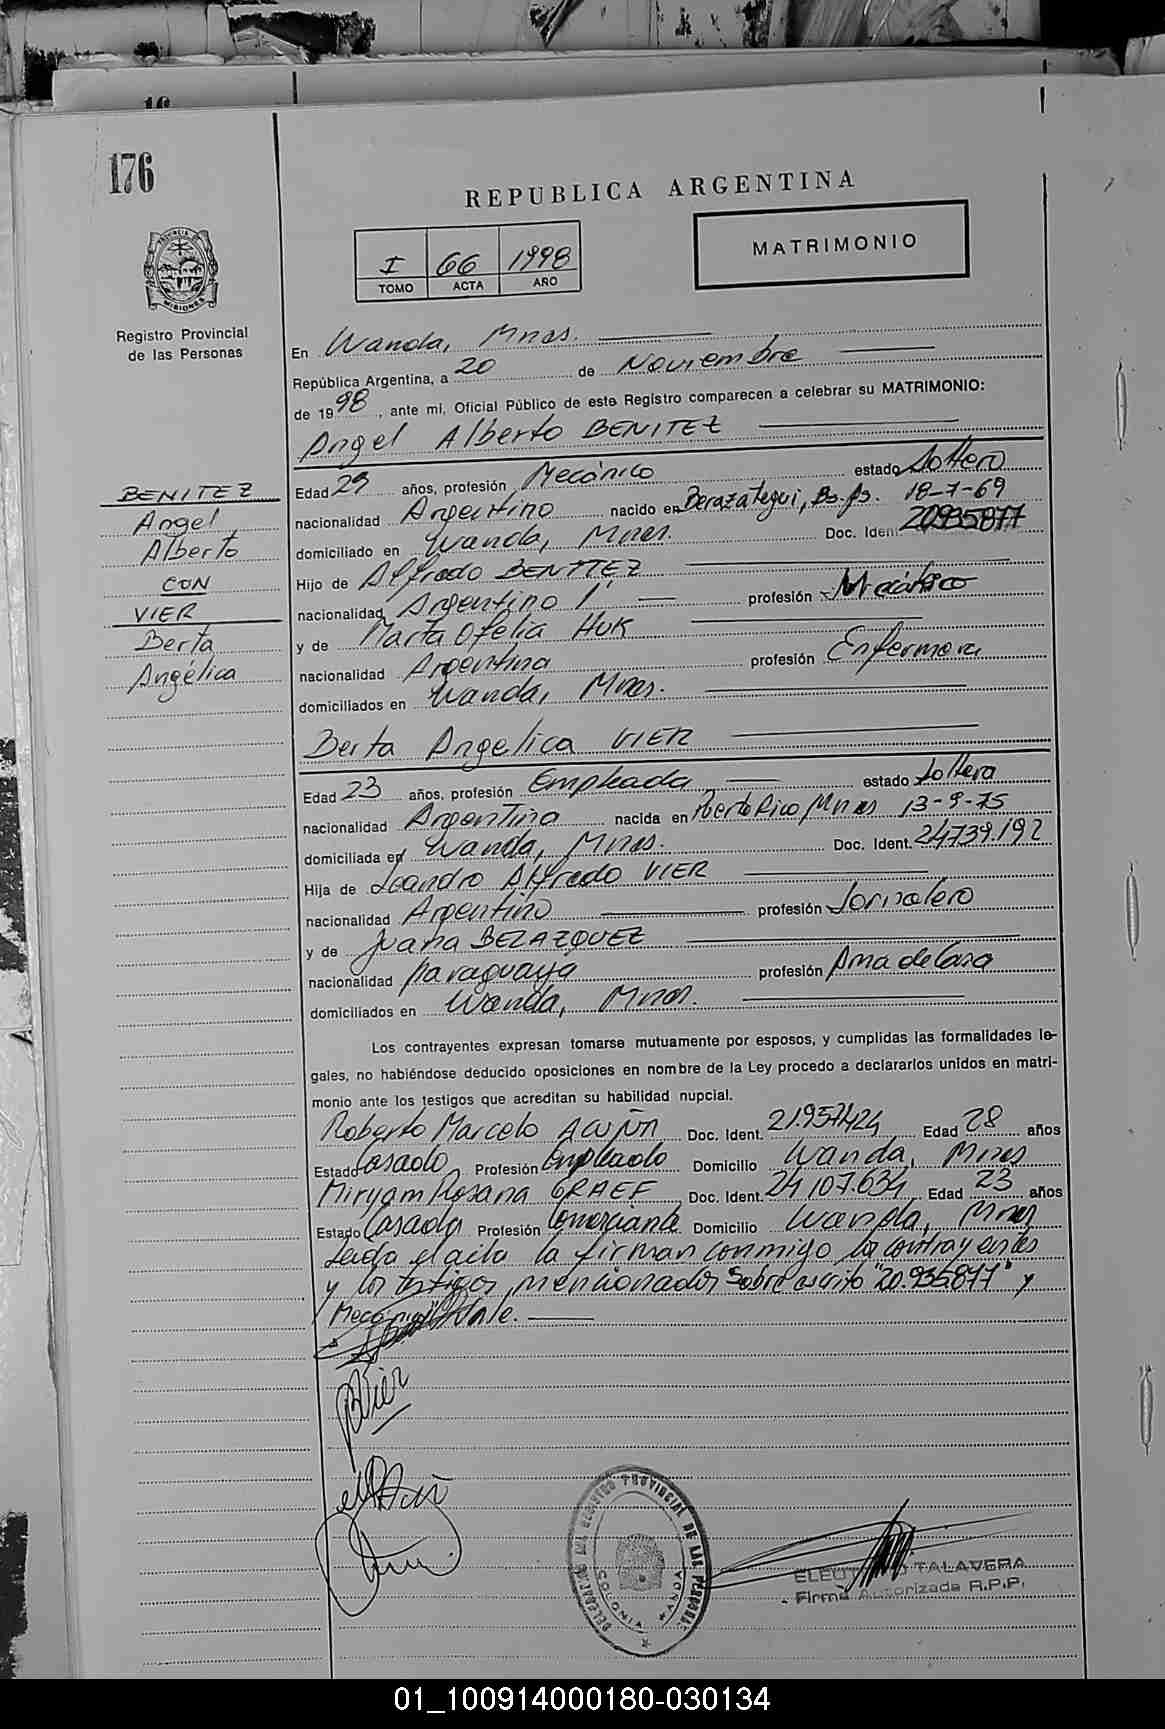 16
176
REPUBLICA ARGENTINA
MATRIMONIO
I 66 1998
TOMO ACTA AÑO
PROVINCIA DE MISIONES
Registro Provincial
de las Personas
En Wanda, Mnes.
República Argentina, a 20 de Noviembre
de 1998, ante mi, Oficial Público de este Registro comparecen a celebrar su MATRIMONIO:
Angel Alberto BENITEZ
BENITEZ
Angel
Alberto
CON
VIER
Berta
Angélica
Edad 29 años, profesión Mecánico estado Soltero
nacionalidad Argentino nacido en Berazategui, Bs. As. 18-7-69
domiciliado en Wanda, Mnes. Doc. Ident. 20935877
Hijo de Alfredo BENITEZ
nacionalidad Argentino profesión Mecánico
y de Marta Ofelia HUK
nacionalidad Argentina profesión Enfermera
domiciliados en Wanda, Mnes.
Berta Angelica VIER
Edad 23 años, profesión Empleada estado Soltera
nacionalidad Argentina nacida en Puerto Rico Mnes 13-9-75
domiciliada en Wanda, Mnes. Doc. Ident. 24739.192
Hija de Leandro Alfredo VIER
nacionalidad Argentino profesión Jornalero
y de Juana BELAZQUEZ
nacionalidad Paraguaya profesión Ama de Casa
domiciliados en Wanda, Mnes.
Los contrayentes expresan tomarse mutuamente por esposos, y cumplidas las formalidades le-
gales, no habiéndose deducido oposiciones en nombre de la Ley procedo a declararlos unidos en matri-
monio ante los testigos que acreditan su habilidad nupcial.
Roberto Marcelo ACUÑA Doc. Ident. 21.957424 Edad 28 años
Estado Casado Profesión Empleado Domicilio Wanda, Mnes
Miryam Rosana GRAEF Doc. Ident. 24107.634 Edad 23 años
Estado Casada Profesión Comerciante Domicilio Wanda, Mnes
Leida el acta la firman conmigo los contrayentes
y los testigos mencionados Sobre escrito "20.935877" y
Mecánico" Vale.
BVier
DELEGACION DEL REGISTRO PROVINCIAL DE LAS PERSONAS
COLONIA WANDA
TALAVERA
Firma Autorizada R.P.P.
01_100914000180-030134